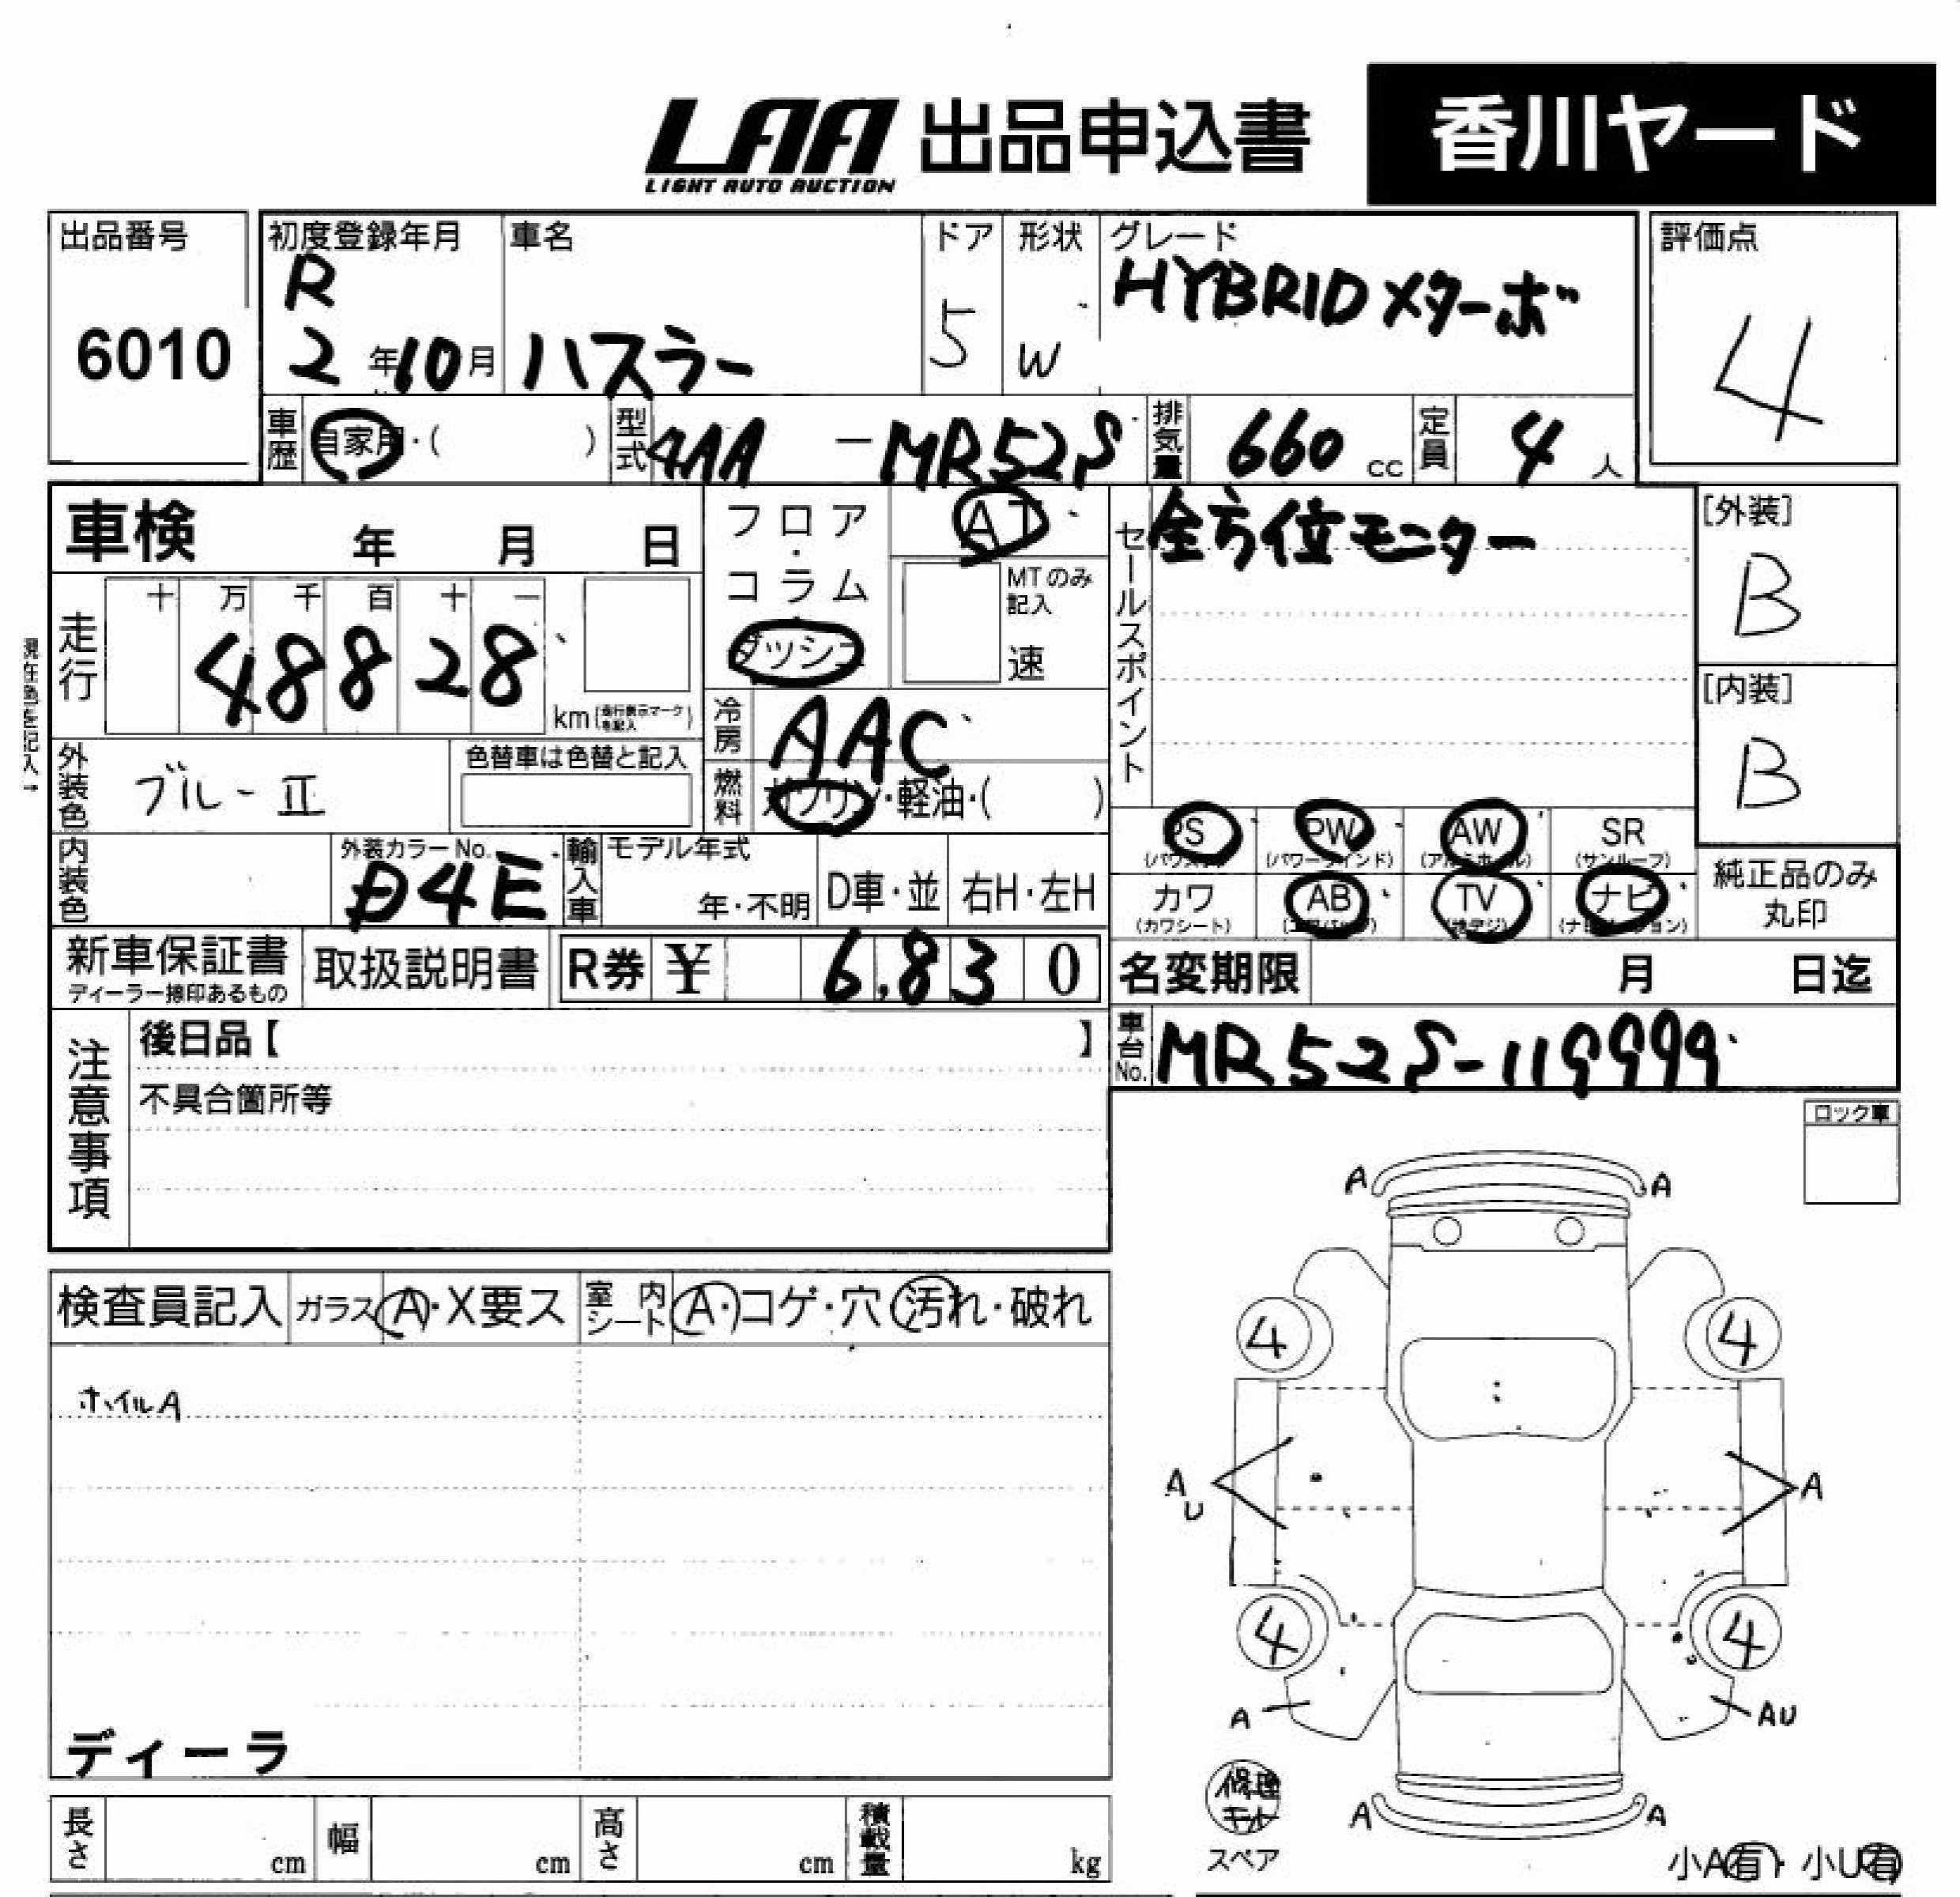 LAA 出品申込書 香川ヤード
LIGHT AUTO AUCTION
出品番号 初度登録年月 車名 ドア 形状 グレード 評価点
6010 R 2年10月 ハスラー 5 W HYBRID Xターボ 4
車歴 自家用・( ) 型式 4AA-MR52S 排気量 660 cc 定員 4 人
車検 年 月 日
フロア・コラム・ダッシュ AT
MTのみ記入 速
セールスポイント 全方位モニター
[外装] B
[内装] B
走行 十 万 千 百 十 一
48828 km (走行表示マークを記入)
現在色を記入→
冷房 AAC
外装色 ブルーⅡ 色替車は色替と記入
燃料 ガソリン・軽油・( )
内装色 外装カラーNo. D4E
輸入車 モデル年式 年・不明 D車・並 右H・左H
PS (パワステ) PW (パワーウインド) AW (アルミホイル) SR (サンルーフ)
カワ (カワシート) AB (エアバッグ) TV (地デジ) ナビ (ナビゲーション)
純正品のみ丸印
新車保証書 ディーラー捺印あるもの 取扱説明書 R券 ¥ 6,830
名変期限 月 日迄
車台No. MR52S-119999
注意事項 後日品【 】
不具合箇所等
ロック車
検査員記入 ガラス A・X要ス 室内シート A・コゲ・穴・汚れ・破れ
ホイルA
ディーラ
A A
4 4
A U A
4 4
A AU
A A
修理キット
スペア
小A有・小U有
長さ cm 幅 cm 高さ cm 積載量 kg